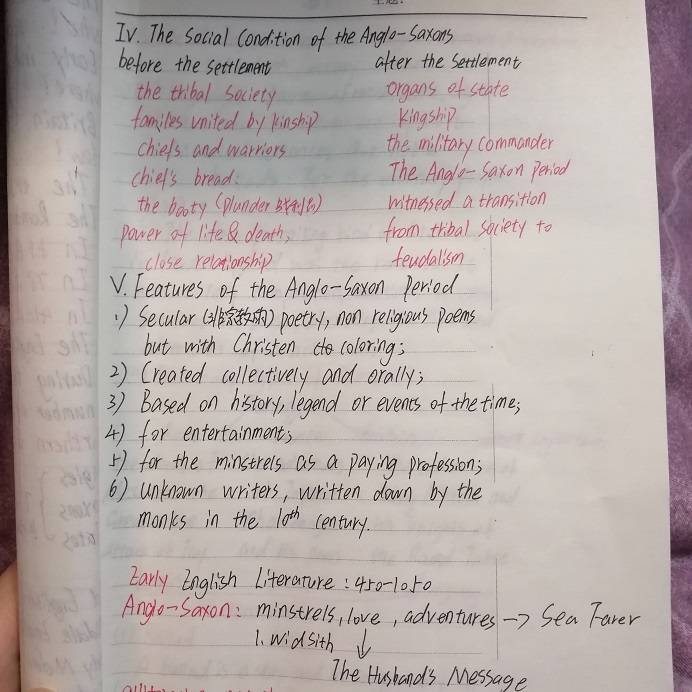 主题:
IV. The Social Condition of the Anglo-Saxons
before the settlement
after the settlement
the tribal society
organs of state
familes united by kinship
kingship
chiefs and warriors
the military commander
chief's bread:
The Anglo-Saxon Period
the booty (plunder 战利品)
witnessed a transition
power of life & death,
from tribal society to
close relationship
feudalism
V. Features of the Anglo-Saxon Period
1) Secular (非宗教的) poetry, non religious poems
but with Christen coloring;
2) Created collectively and orally;
3) Based on history, legend or events of the time;
4) for entertainment;
5) for the minstrels as a paying profession;
6) unknown writers, written down by the
monks in the 10th century.
Early English Literature: 450-1050
Anglo-Saxon: minstrels, love, adventures → Sea Farer
1. Widsith ↓
The Husband's Message